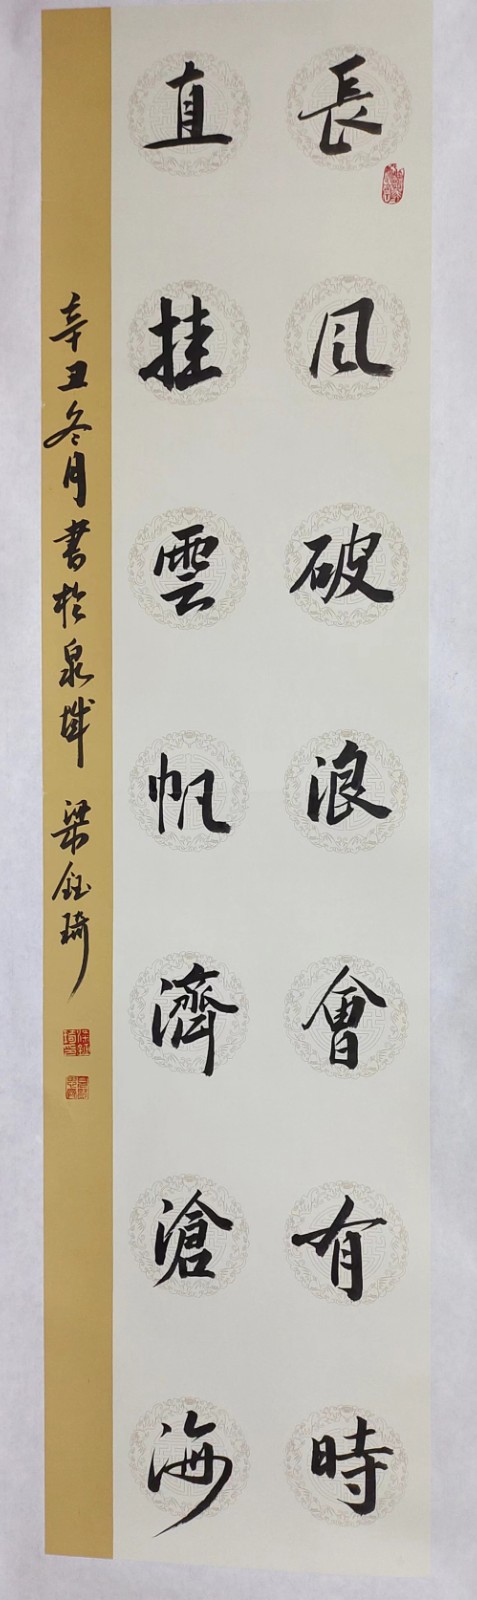 長風破浪會有時
直挂雲帆濟滄海
辛丑冬月書於泉城 梁鈺琦